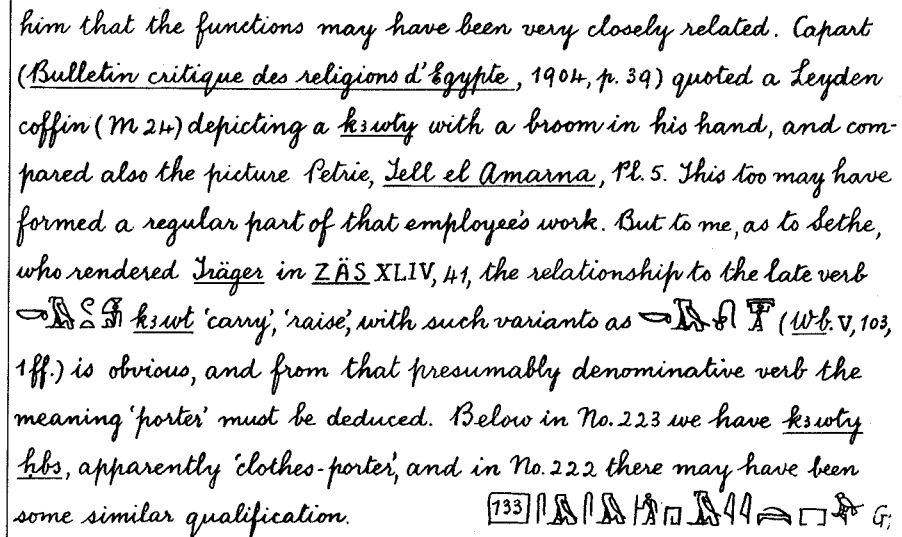 him that the functions may have been very closely related. Capart
(Bulletin critique des religions d'Egypte, 1904, p. 39) quoted a Leyden
coffin (M 24) depicting a kꜣwty with a broom in his hand, and com-
pared also the picture Petrie, Tell el Amarna, Pl. 5. This too may have
formed a regular part of that employee's work. But to me, as to Sethe,
who rendered Träger in ZÄS XLIV, 41, the relationship to the late verb
kꜣwt 'carry', 'raise', with such variants as (Wb. V, 103,
1ff.) is obvious, and from that presumably denominative verb the
meaning 'porter' must be deduced. Below in No. 223 we have kꜣwty
ḥbs, apparently 'clothes-porter', and in No. 222 there may have been
some similar qualification. 133